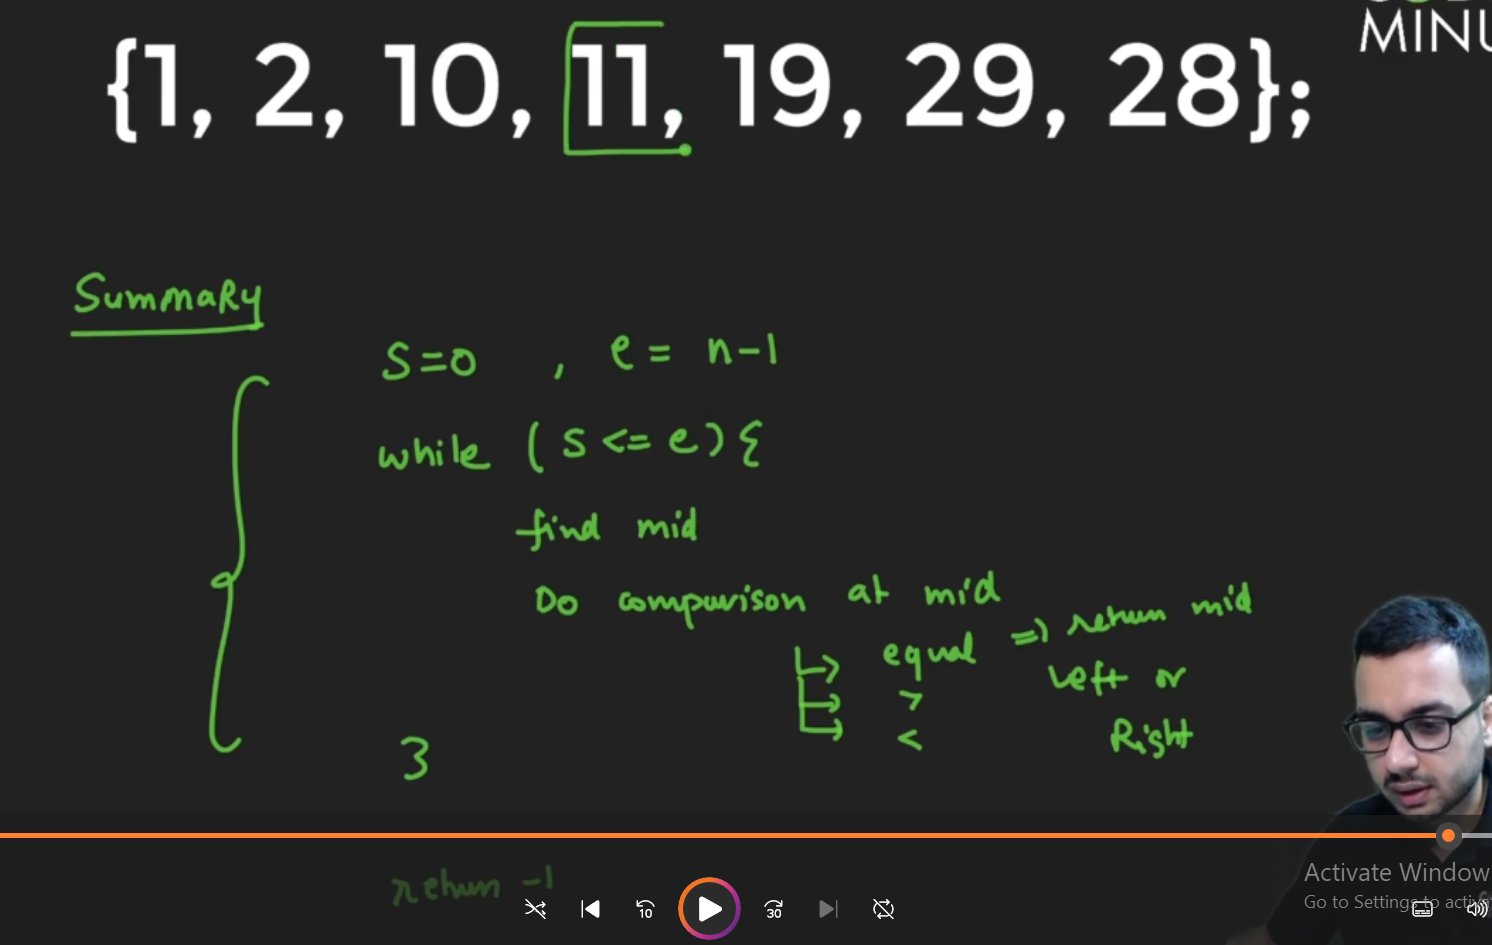 {1, 2, 10, 11, 19, 29, 28};
MINU
Summary
S=0 , e = n-1
while (s <= e) {
find mid
Do comparison at mid
equal => return mid
> left or
< Right
}
return -1
10
30
Activate Window
Go to Settings to activ